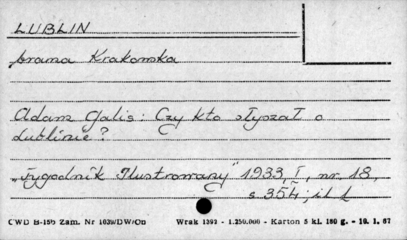 LUBLIN
brama Krakowska
Adam Galis: Czy kto słyszał o
Lublinie?
"Tygodnik Ilustrowany" 1933, I, nr. 18,
s. 354; il 1
CWD B-156 Zam. Nr 1039/DW/Ob Wrak 1392 - 1.250.000 - Karton 5 kl. 180 g. - 10. 1. 67